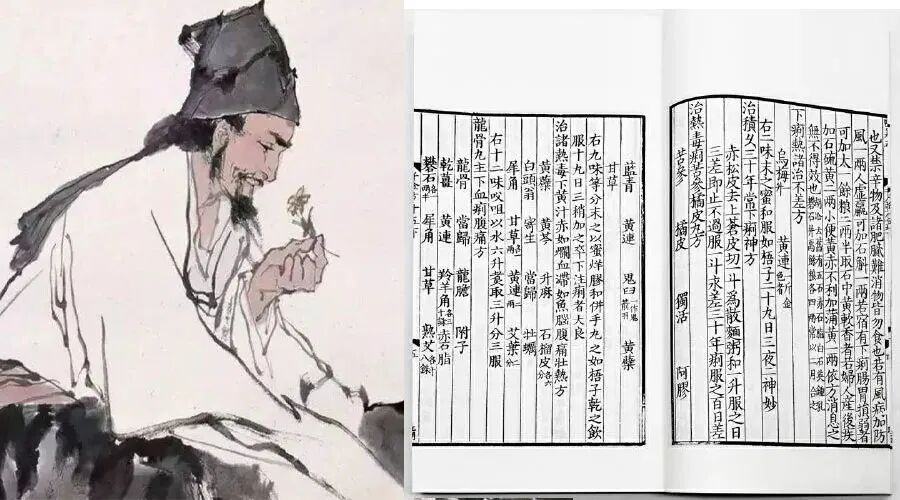 也又禁辛物及諸肥膩難消物皆勿食也若有風病加防
風一兩人虛羸可加石斛一兩若宿有下痢腸胃損弱者
可加太一餘粮二兩半取石中黃軟香者若婦人産後疾
加石硫黃二兩小便黃赤不利加蒲黃一兩依方消息之
無不得效也
下痢熱諸治不差方
烏梅升 黃連一斤金色者
右二味末之蜜和服如梧子二十九日三夜二神妙
治積久三十年常下痢神方
赤松皮去上蒼皮切一斗爲散麵粥和一升服之日
三差即止不過服一斗永差三十年痢服之百日差
治熱毒痢苦參橘皮丸方
苦參 橘皮 獨活 阿膠
藍青 黃連 鬼臼 黃檗
甘草
右九味等分末之以蜜烊膠和併手丸之如梧子乾之飲
服十丸日三稍加之卒下注痢者大良
治諸熱毒下黃汁赤如爛血滯如魚腦腹痛壯熱方
黃檗 黃芩 升麻 石榴皮各六分
白頭翁 寄生 當歸 牡蠣
犀角 甘草 黃連 艾葉
右十二味㕮咀以水六升煮取三升分三服
龍骨丸主下血痢腹痛方
龍骨 當歸 龍膽 附子
乾薑 黃連 羚羊角 赤石脂
礬石 犀角 甘草 熟艾